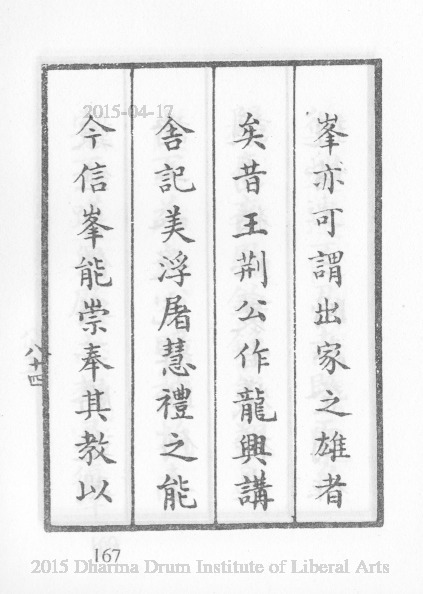 峯亦可謂出家之雄者
矣昔王荆公作龍興講
舍記美浮屠慧禮之能
今信峯能崇奉其教以
八十四
167
2015-04-17
2015 Dharma Drum Institute of Liberal Arts